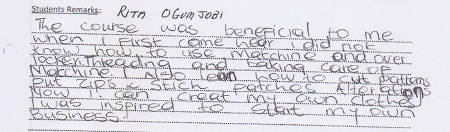 Students Remarks: RITA OGUMJOBI
The course was beneficial to me
when I fust come hear I did not
know how to use Machine and over
locker. Threading and taking care of
Machine. I Also lean how to cut patterns
put zips & stich patches Alterations
Now I can creat my own clothes
I was inspired to start my own
Business.